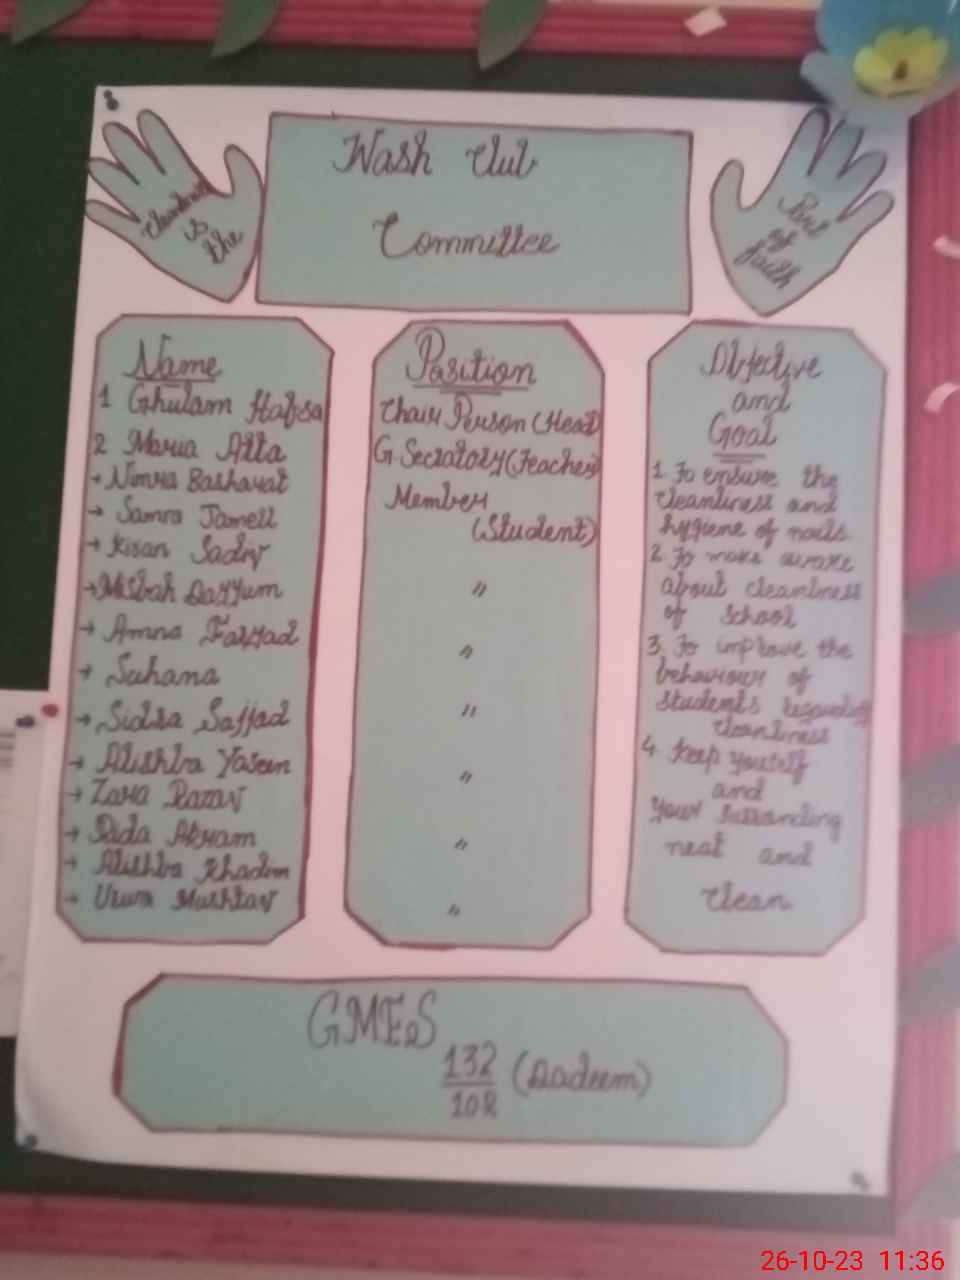 Cleanliness
is
the
Wash Club
Committee
Part
of
faith
Name
1 Ghulam Hafsa
2 Maria Atta
→ Nimra Basharat
→ Samra Jamell
→ Kisan Sadiq
→ Misbah Qayyum
→ Amna Faryad
→ Suhana
→ Sidra Sajjad
→ Alishba Yaseen
→ Zara Razaq
→ Rida Akram
→ Alishba Khadim
→ Urwa Mushtaq
Position
Chair Person (Head)
G. Secratory (Teacher)
Member
(Student)
"
"
"
"
"
"
Objective
and
Goal
1. To ensure the
cleanliness and
hygiene of nails.
2. To make aware
about cleanliness
of school
3. To improve the
behaviour of
students regarding
cleanliness
4. Keep yourself
and
your surranding
neat and
clean
GMES
132
10R
(Qadeem)
26-10-23 11:36